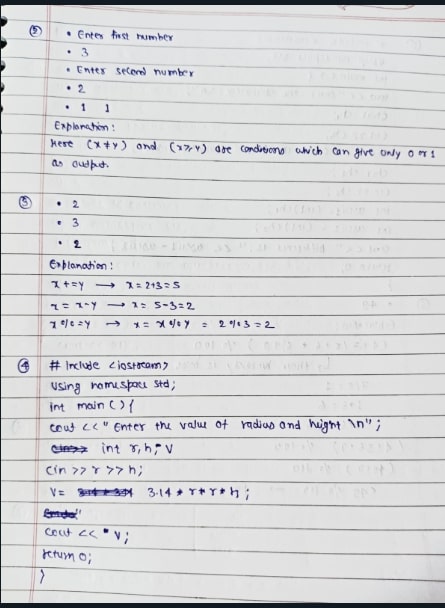 ② • Enter first number
• 3
• Enter second number
• 2
• 1 1
Explanation :
Here (x≠y) and (x>,y) are conditions which can give only 0 or 1
as output.
③ • 2
• 3
• 2
Explanation :
x+=y → x=2+3=5
x = x-y → x= 5-3=2
x%=y → x= x%y = 2%3=2
④ # Include <iostream>
Using namespace std;
int main () {
cout << " Enter the value of radius and height \n" ;
int r, h, v
Cin >> r >> h;
V= 3.14 * r * r * h ;
Cout << " V;
return 0;
}